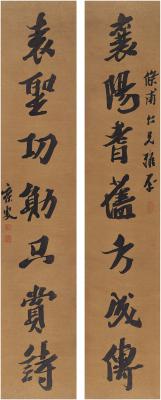 襄陽耆舊方成傳
甫仁兄雅屬
表聖功勛只賞詩